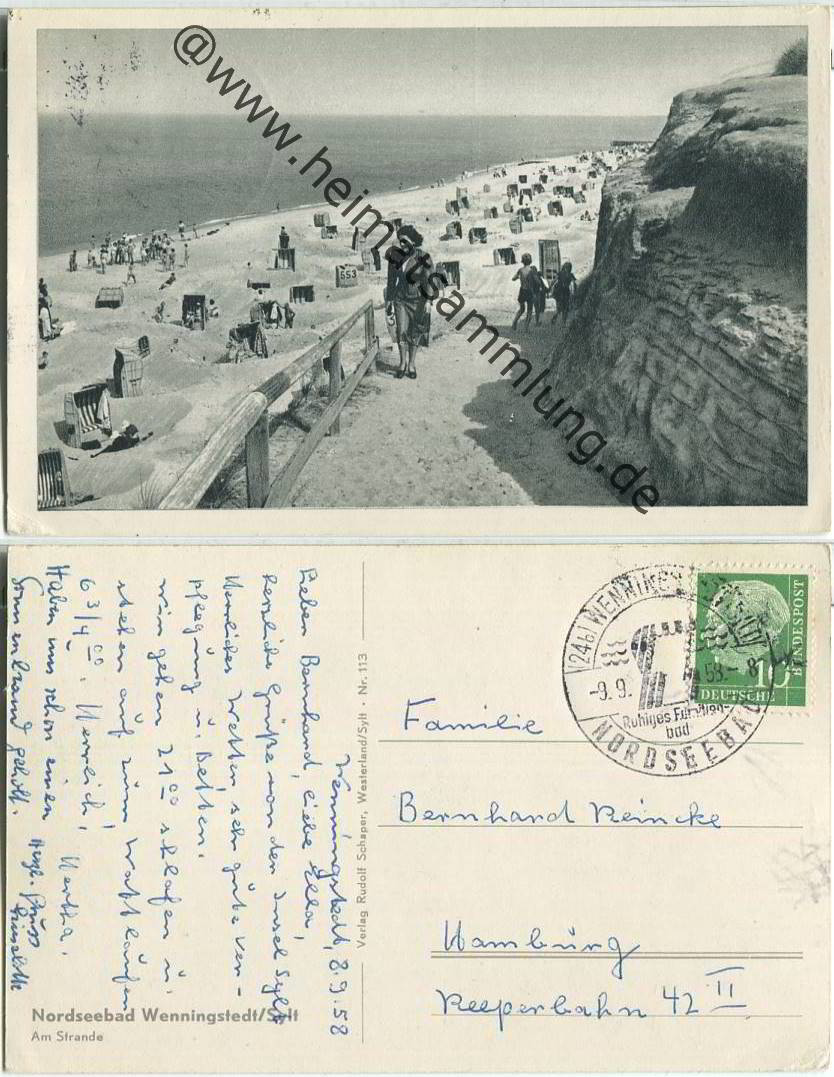 @www.heimatsammlung.de
553
Wenningstedt, 8.9.58
Lieber Bernhard, liebe Ella,
herzliche Grüße von der Insel Sylt
Herrliches Wetter, sehr gute Ver-
pflegung u. Betten.
Wir gehen 21⁰⁰ schlafen u.
stehen auf zum Wattlaufen
6 3/4⁰⁰. Herrlich!
Haben uns schon einen Hertha.
Sonnenbrand geholt.
Herzl. Gruss
Nordseebad Wenningstedt/Sylt
Am Strande
Verlag Rudolf Schaper, Westerland/Sylt · Nr. 113
(24b) WENNINGSTEDT (SYLT)
-9.9.58.-8
Ruhiges Familien-
bad
NORDSEEBAD
10
DEUTSCHE
BUNDESPOST
Familie
Bernhard Reincke
Hamburg
Reeperbahn 42 II